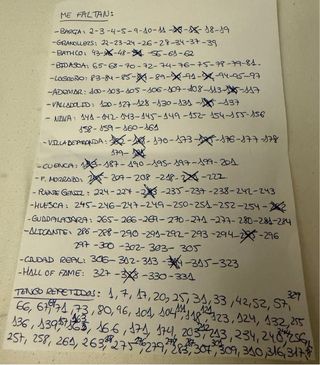 ME FALTAN:
-BARÇA: 2-3-4-5-9-10-11 - -18-19
-GRANOLLERS: 22-23-24-26-28-34-37-39
-BATHCO: 43- -48- -56-61-62
-BIDASOA: 65-68-70-72-74-76-75-78-79-81.
-LOGROÑO: 83-84-85- -89- -91- -94-95-97
-ADEMAR: 100-103-105-106-107-108-113- -117
-VALLADOLID: 120-127-128-130-131- -137
-NAVA: 141-142-143-145-149-152-154-155-156
158-159-160-161
-VILLA DE ARANDA: - -170-173- -176-177-178
179-
-CUENCA: -187-190-195-197-199-201
-P. MORRAZO: -207-208-218- -222
-PUENTE GENIL: 224-227- -235-237-238-242-243
-HUESCA: 245-246-247-249-250-251-252-254-
-GUADALAJARA: 265-266-269-270-271-277-280-281-284
-ALICANTE: 286-288-290-291-292-293-294- -296
-297-300-302-303-305
-CIUDAD REAL: 306-312-313- -315-323
-HALL OF FAME: 327- -330-331
TENGO REPETIDOS: 1, 7, 17, 20, 25, 31, 33, 42, 52, 57, 329
66, 67, 71, 73, 80, 96, 101, 104, 111, 118, 123, 124, 132, 135
136, 139, 163, 166, 171, 174, 203, 212, 213, 234, 240, 256,
257, 258, 261, 263, 275, 276, 279, 283, 307, 309, 310, 316, 317